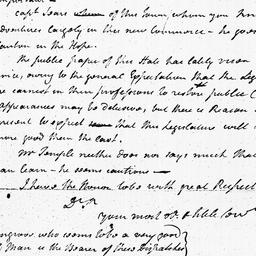 capt Sears of this Town whom you know
adventures largely in this new Commerce - he goes
in the Hope.
The public paper of this State has lately risen
owing to the general Expectation that the Leg
are earnest in their professions to restore public C
appearances may be delusive, but there is Reason
present to expect that this Legislature will
more good than the last.
Mr Temple neither does nor says much that
can learn - he seems cautious -
I have the Honor to be with great Respect
your most ob. & hble serv
who seems to be a very good
Man is the Bearer of these Dispatches